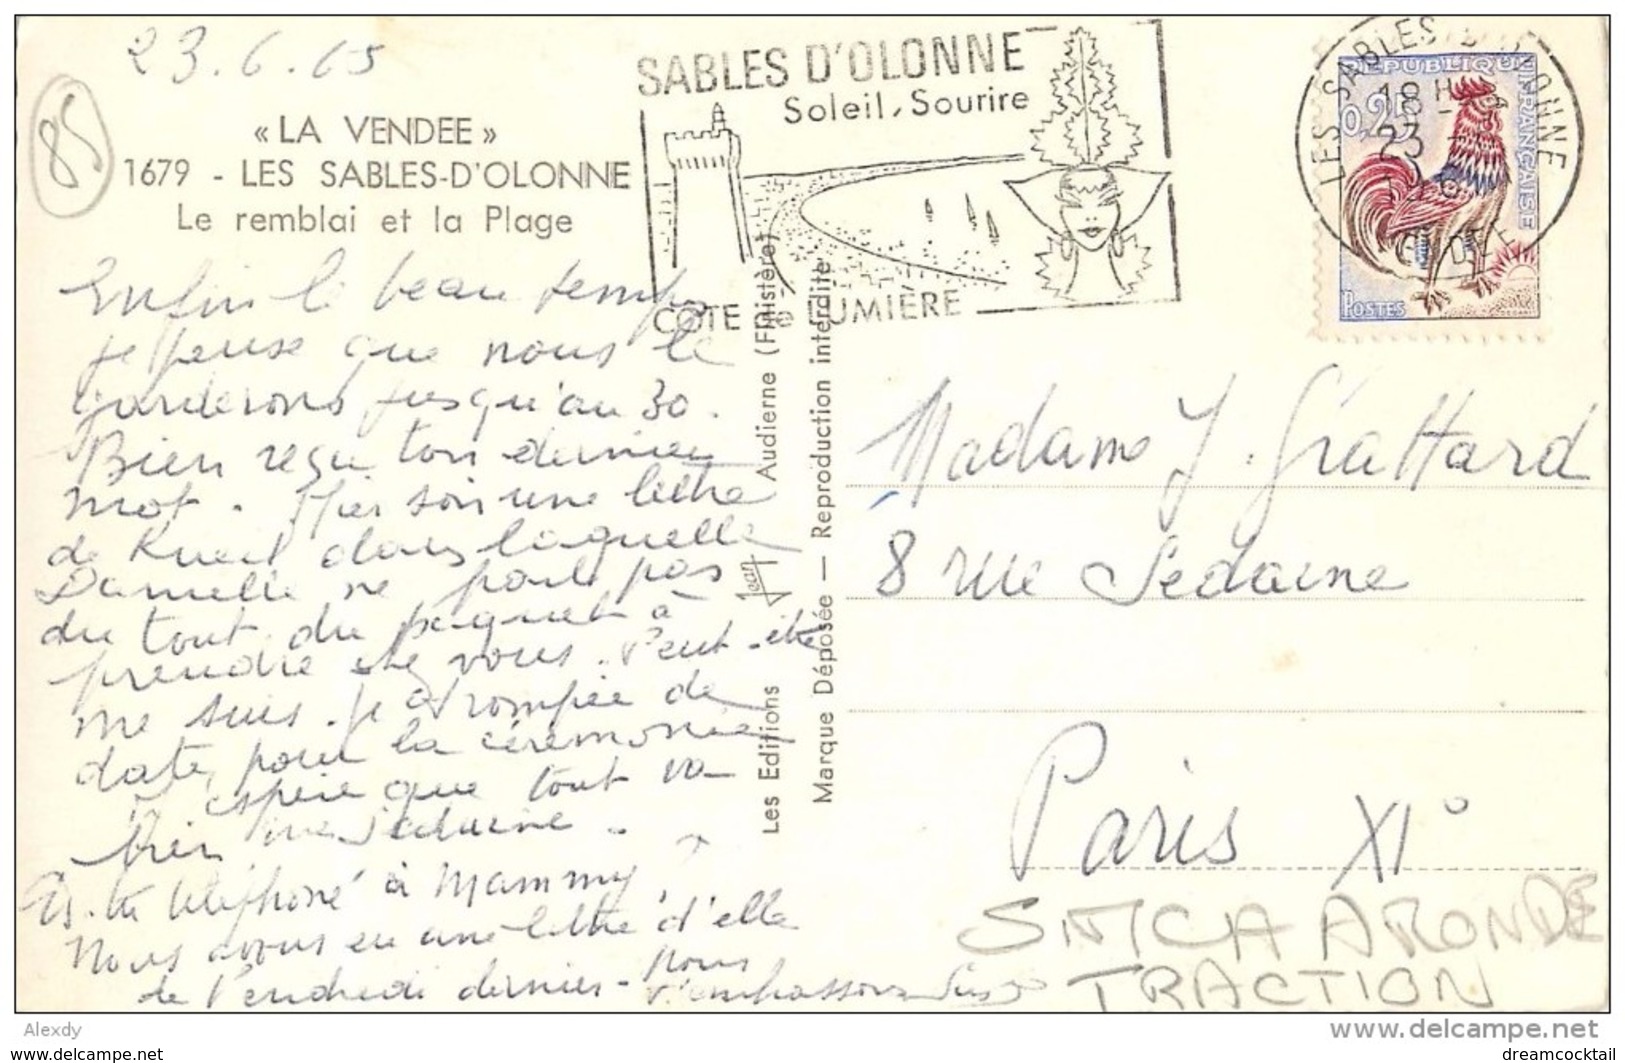 23.6.65
85
« LA VENDEE »
1679 - LES SABLES-D'OLONNE
Le remblai et la Plage
SABLES D'OLONNE
Soleil, Sourire
COTE DE LUMIÈRE
LES SABLES D'OLONNE
18 H
23
VENDEE
REPUBLIQUE FRANÇAISE
0,25
POSTES
Enfin le beau temps
je pense que nous le
garderons jusqu'au 30.
Bien reçu ton dernier
mot. Hier soir une lettre
de Rueil dans laquelle
Danielle ne parle pas
du tout du paquet à
prendre chez vous. Peut-être
me suis-je trompée de
date pour la cérémonie
J'espère que tout va
bien rue Sedaine.
As-tu téléphoné à Mammy ?
Nous avons eu une lettre d'elle
de Vendredi dernier - Nous
t'embrassons
Les Editions Jean Audierne (Finistère)
Marque Déposée — Reproduction interdite
Madame J. Grattard
8 rue Sedaine
Paris XI°
SIMCA ARONDE
TRACTION
Alexdy
www.delcampe.net
http://www.delcampe.net
dreamcocktail